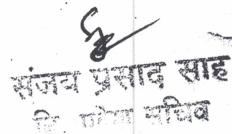 संजय प्रसाद साह
सचिव